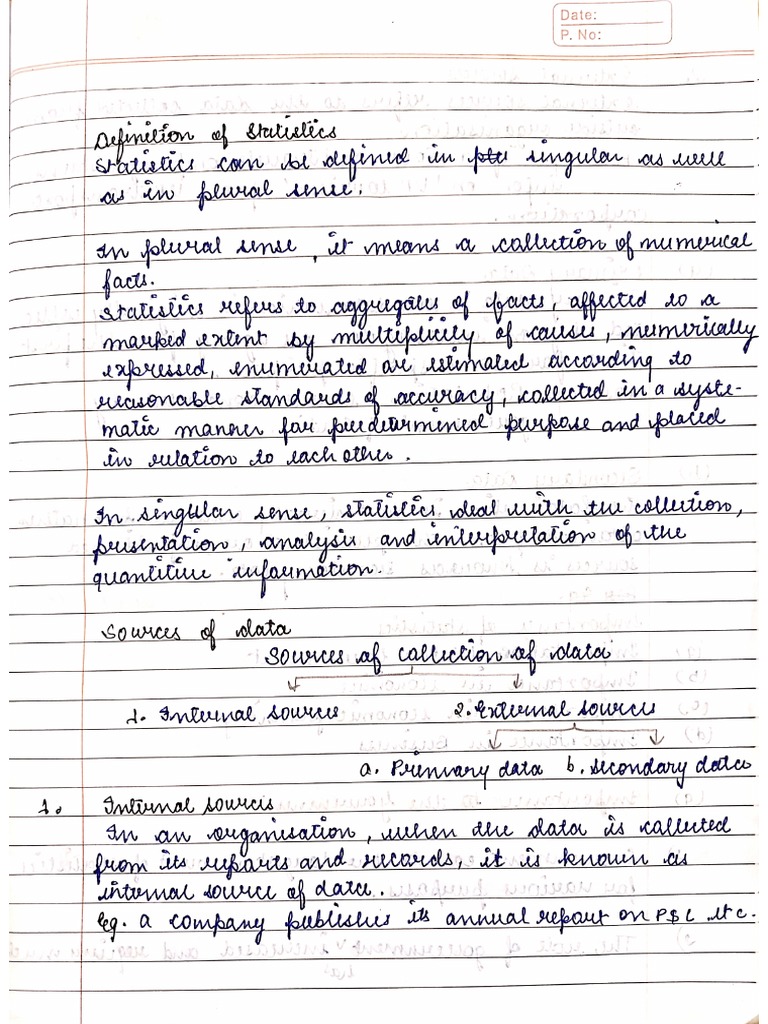 Date:
P. No:
Definition of Statistics
Statistics can be defined in singular as well
as in plural sense.
In plural sense, it means a collection of numerical
facts.
Statistics refers to aggregates of facts, affected to a
marked extent by multiplicity of causes, numerically
expressed, enumerated or estimated according to
reasonable standards of accuracy, collected in a syste-
matic manner for predetermined purpose and placed
in relation to each other.
In singular sense, statistics deal with the collection,
presentation, analysis and interpretation of the
quantitive information.
Sources of data
Sources of collection of data
1. Internal sources 2. External sources
a. Primary data b. Secondary data
1. Internal sources
In an organisation, when the data is collected
from its reports and records, it is known as
internal source of data.
Eg. a company publishes its annual report on P&L etc.